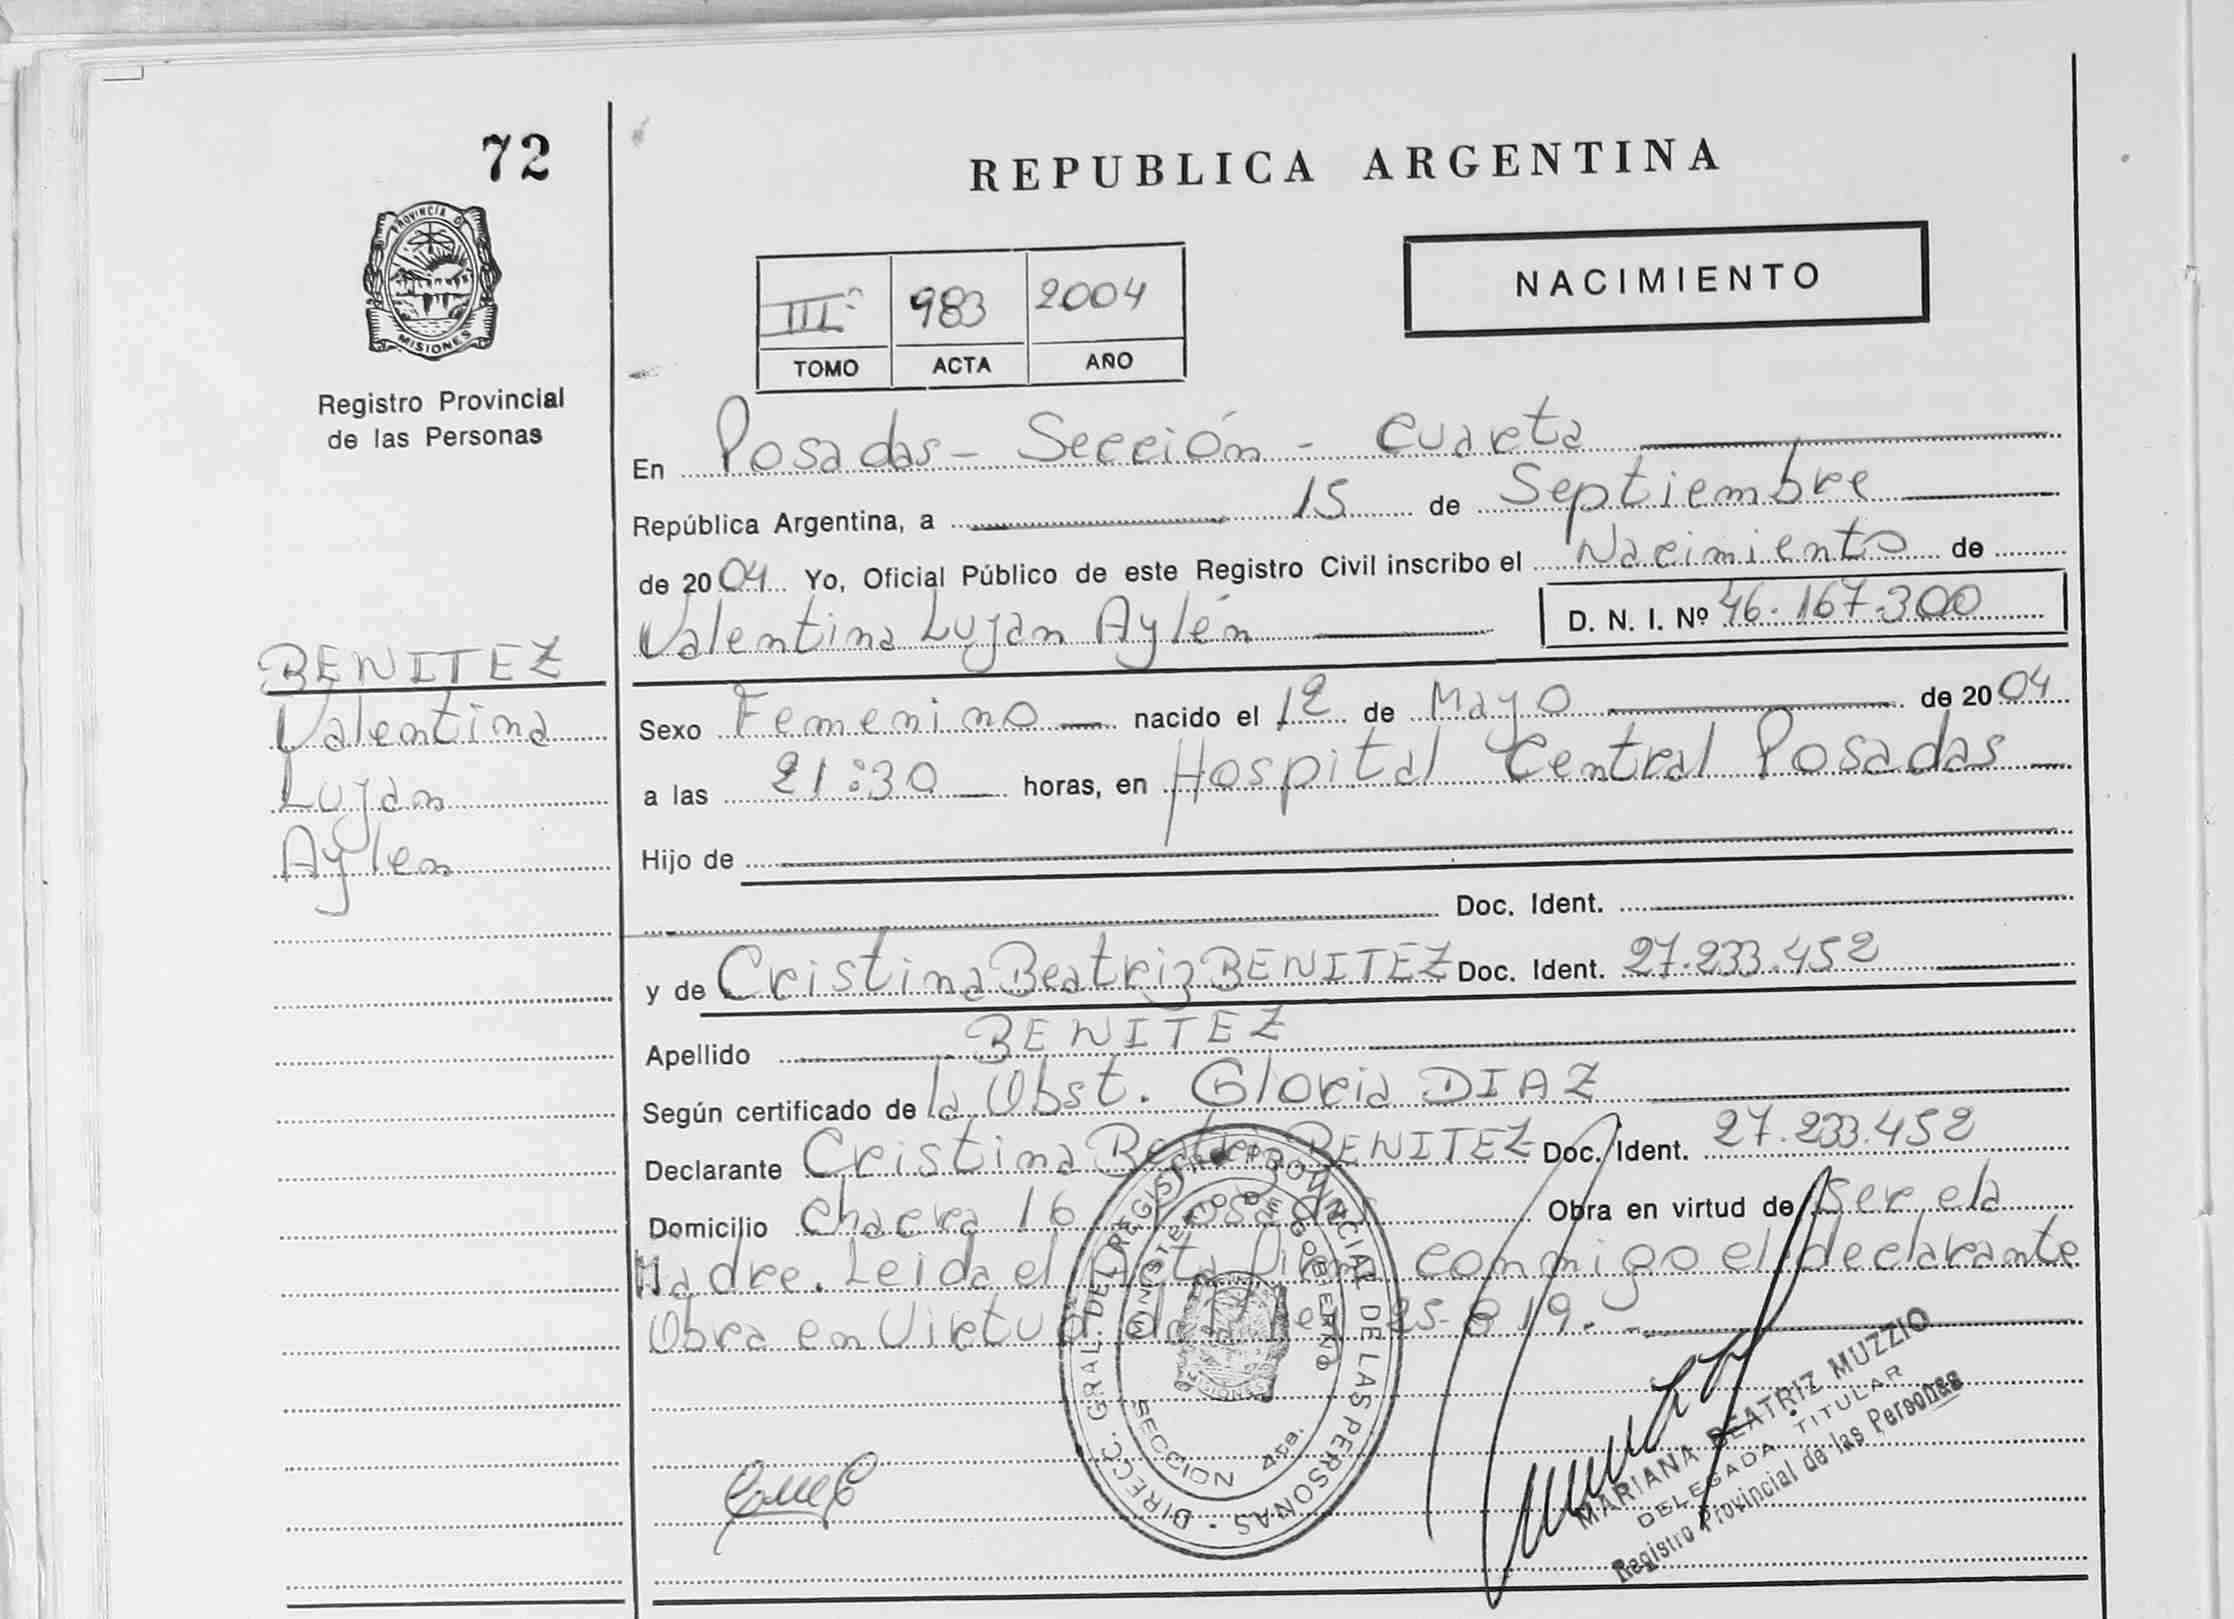 72
PROVINCIA DE
MISIONES
Registro Provincial
de las Personas
BENITEZ
Valentina
Lujan
Aylen
REPUBLICA ARGENTINA
NACIMIENTO
III° 983 2004
TOMO ACTA AÑO
En Posadas - Sección - Cuarta
República Argentina, a 15 de Septiembre
de 2004 Yo, Oficial Público de este Registro Civil inscribo el Nacimiento de
Valentina Lujan Aylén D. N. I. Nº 46.167.300
Sexo Femenino nacido el 12 de Mayo de 2004
a las 21:30 horas, en Hospital Central Posadas
Hijo de
Doc. Ident.
y de Cristina Beatriz BENITEZ Doc. Ident. 27.233.452
Apellido BENITEZ
Según certificado de la Obst. Gloria DIAZ
Declarante Cristina Beatriz BENITEZ Doc. Ident. 27.233.452
Domicilio Chacra 16 Posadas Obra en virtud de Ser ela
Madre. Leida el Acta Firma conmigo el declarante
Obra en Virtud de la Ley 25-819.
DIRECC. GRAL. DEL REGISTRO PROVINCIAL DE LAS PERSONAS
MINISTERIO DE GOBIERNO
SECCION 4ta.
MARIANA BEATRIZ MUZZIO
DELEGADA TITULAR
Registro Provincial de las Personas